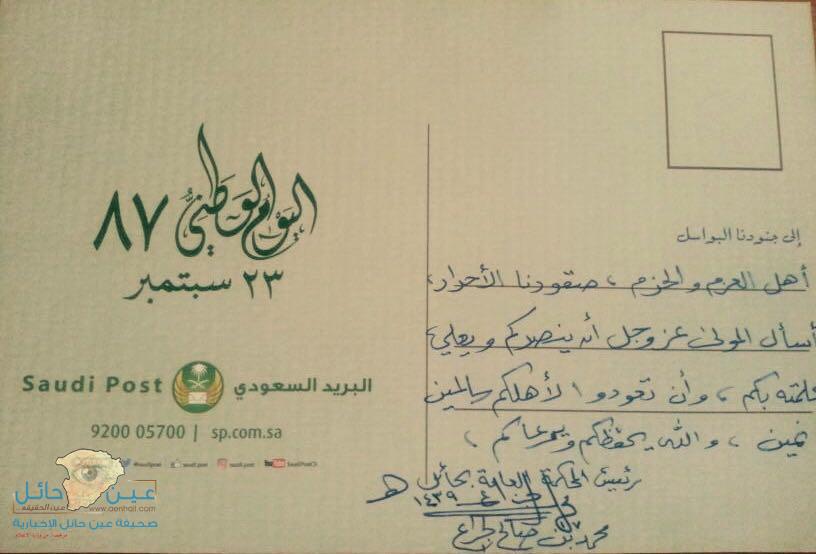 اليوم الوطني ٨٧
٢٣ سبتمبر
Saudi Post البريد السعودي
9200 05700 | sp.com.sa
saudipost saudipost saudi.post SaudiPostCh
إلى جنودنا البواسل
أهل العزم والحزم ، صقورنا الأحرار،
أسأل المولى عز وجل أن ينصركم ويعلي
كلمته بكم ، وأن تعودوا لأهلكم سالمين
غانمين ، والله يحفظكم ويرعاكم ،
رئيس المحكمة العامة بحائل
١٤٣٩ هـ
محمد بن صالح
عين حائل
عين الحقيقة
www.aenhail.com
صحيفة عين حائل الإخبارية